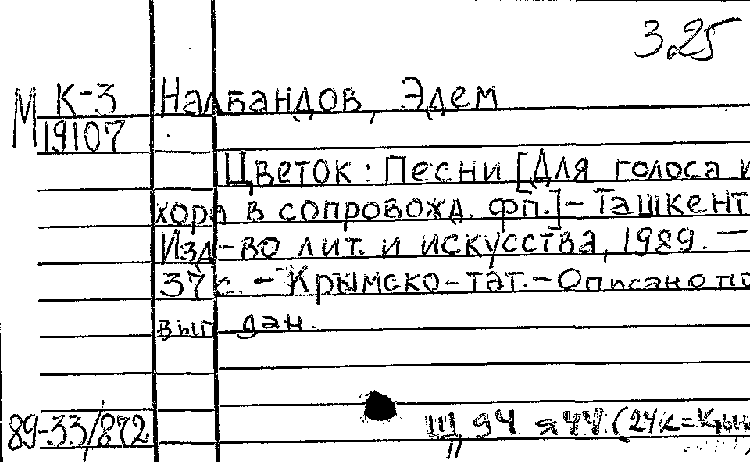 3.25
М К-3 Налбандов, Эдем
19107
Цветок : Песни [Для голоса и
хора в сопровожд. фп.]- Ташкент
Изд-во лит. и искусства, 1989. —
37 с. - Крымско-тат. - Описано по
вып. дан.
89-33/872 Щ 94 я 44. (24К=Крым